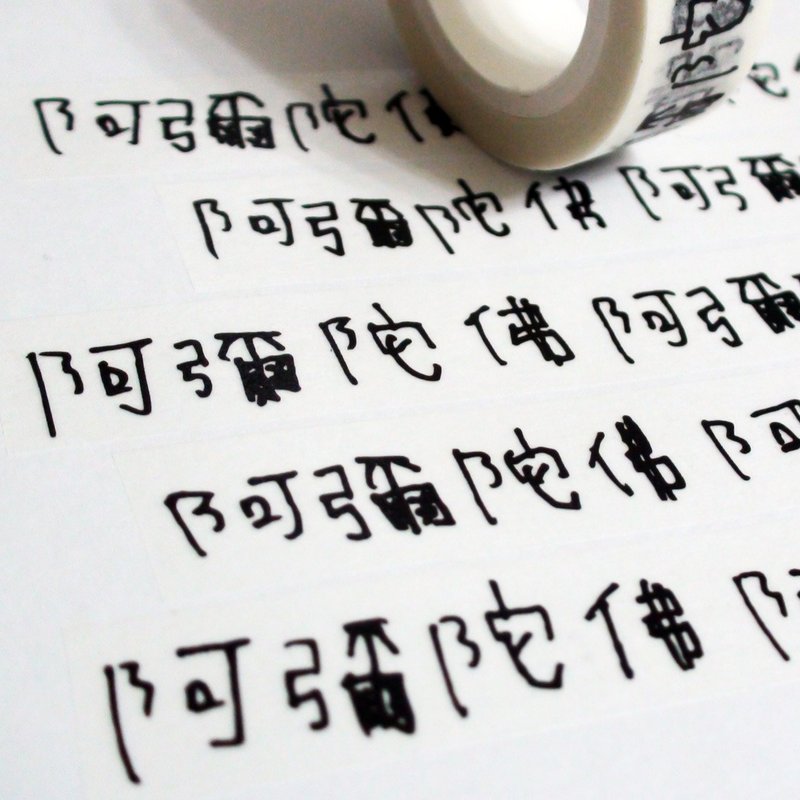 阿彌陀佛
阿彌陀佛 阿彌
阿彌陀佛 阿彌
阿彌陀佛 阿
阿彌陀佛